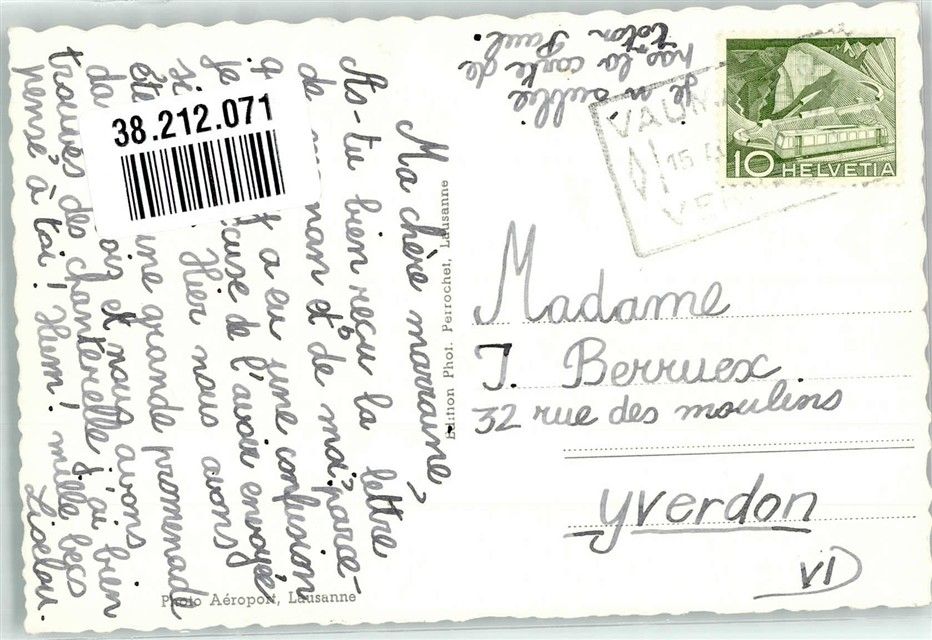 Ma chère marraine
As-tu bien reçu la lettre
de man et de moi, parce-
q t a eu une confusion
je ause de l'avoir envoyée
si Hier nous avons
éte ine grande promenad
da oiz et nous avons
trouvés des chanterelle j'ai bien
pensé à toi! Hum! mille becs
Liselou.
Je n'oublie
pas la carte de
Paul.
38.212.071
Edition Phot. Perrochet, Lausanne
Photo Aéroport, Lausanne
VAUM
15
10 HELVETIA
Madame
J. Berruex
32 rue des moulins
yverdon
VD